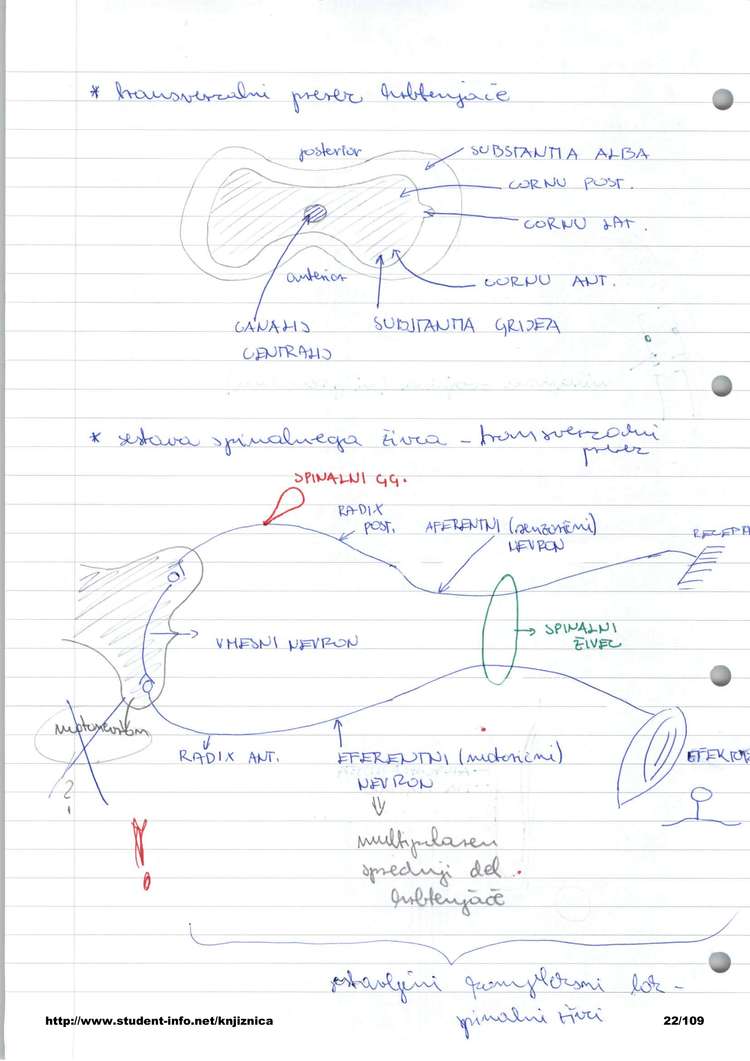 * transverzalni prerez hrbtenjače
posterior
SUBSTANTIA ALBA
CORNU POST.
CORNU LAT.
anterior
CORNU ANT.
CANALIS
CENTRALIS
SUBSTANTIA GRISEA
* sestava spinalnega živca - transverzalni
prerez
SPINALNI GG.
RADIX
POST.
AFERENTNI (senzorični)
NEVRON
RECEPT
VMESNI NEVRON
SPINALNI
ŽIVEC
RADIX ANT.
EFERENTNI (motorični)
NEVRON
EFEKTOR
?
!
multipolaren
sprednji del
hrbtenjače
sestavljeni kompleksni lok -
spinalni živci
http://www.student-info.net/knjiznica
22/109